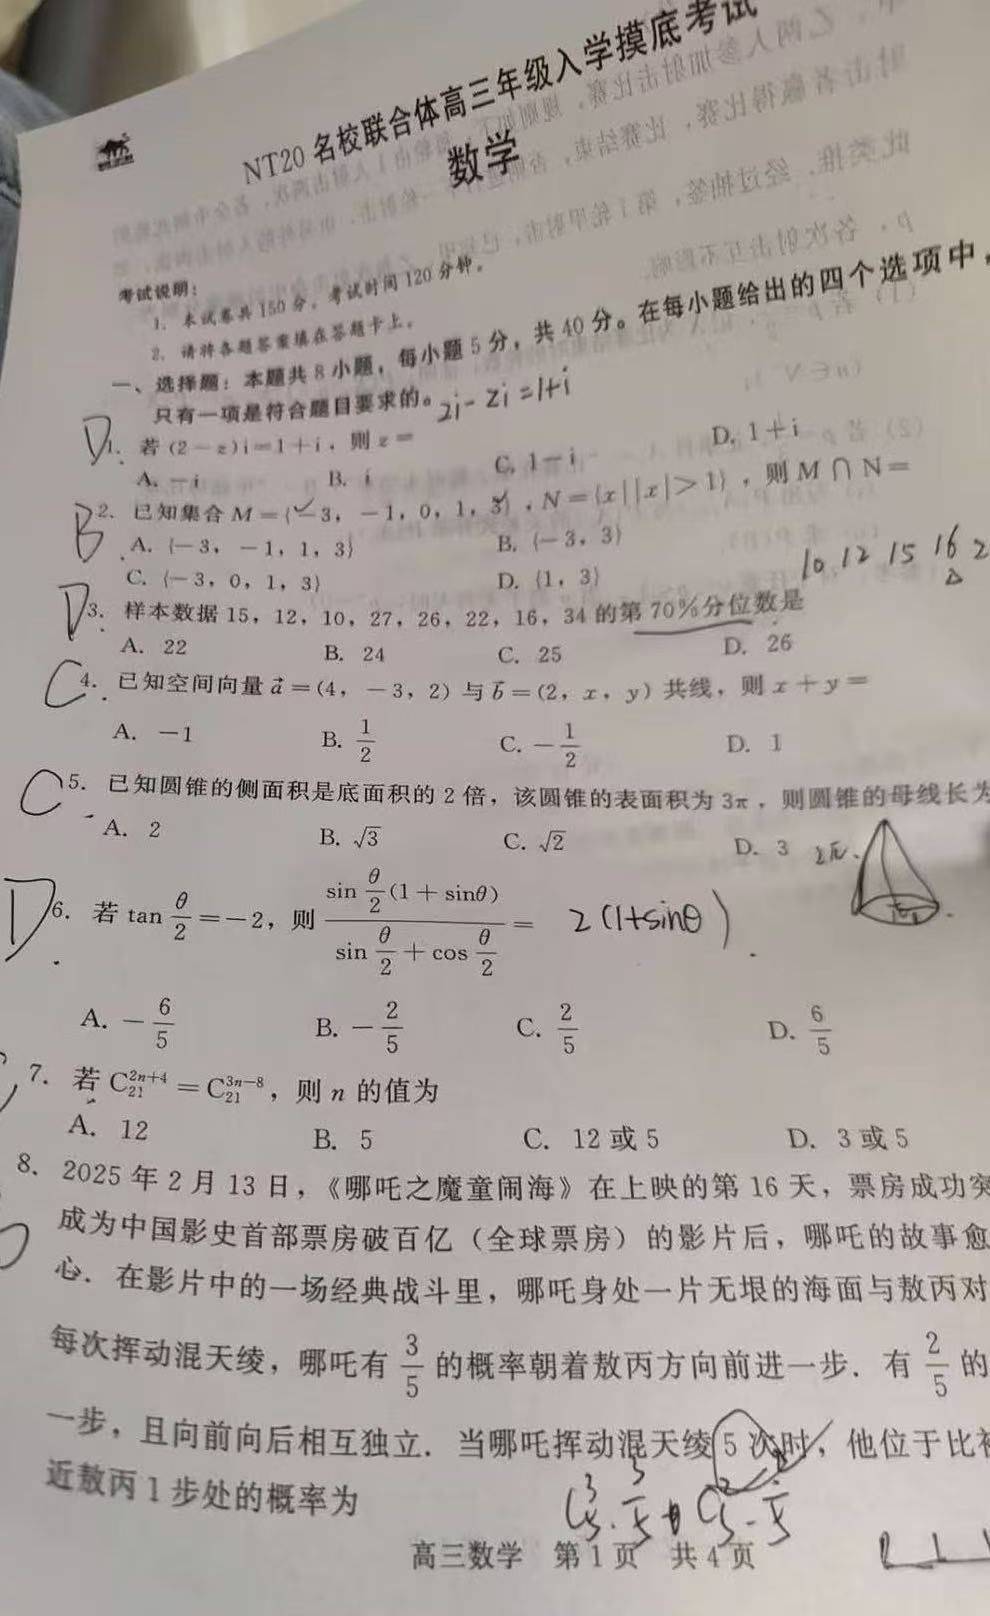 NT20 名校联合体高三年级入学摸底考试
数学
考试说明：
1. 本试卷共 150 分，考试时间 120 分钟。
2. 请将各题答案填在答题卡上。
一、选择题：本题共 8 小题，每小题 5 分，共 40 分。在每小题给出的四个选项中，
只有一项是符合题目要求的。
2i-zi=1+i
D
1. 若 (2-z)i=1+i，则 z=
A. -i B. i C. 1-i D. 1+i
B
2. 已知集合 M={-3，-1，0，1，3}，N={x||x|>1}，则 M∩N=
A. {-3，-1，1，3} B. {-3，3}
C. {-3，0，1，3} D. {1，3}
10 12 15 16 2
D
3. 样本数据 15，12，10，27，26，22，16，34 的第 70%分位数是
A. 22 B. 24 C. 25 D. 26
C
4. 已知空间向量 a⃗=(4，-3，2) 与 b⃗=(2，x，y) 共线，则 x+y=
A. -1 B. 1/2 C. -1/2 D. 1
C
5. 已知圆锥的侧面积是底面积的 2 倍，该圆锥的表面积为 3π，则圆锥的母线长为
A. 2 B. √3 C. √2 D. 3
2π.
D
6. 若 tan θ/2=-2，则 (sin θ/2 (1+sinθ))/(sin θ/2+cos θ/2)= 2(1+sinθ)
A. -6/5 B. -2/5 C. 2/5 D. 6/5
7. 若 C₂₁²ⁿ⁺⁴=C₂₁³ⁿ⁻⁸，则 n 的值为
A. 12 B. 5 C. 12 或 5 D. 3 或 5
8. 2025 年 2 月 13 日，《哪吒之魔童闹海》在上映的第 16 天，票房成功突
成为中国影史首部票房破百亿（全球票房）的影片后，哪吒的故事愈
心．在影片中的一场经典战斗里，哪吒身处一片无垠的海面与敖丙对
每次挥动混天绫，哪吒有 3/5 的概率朝着敖丙方向前进一步．有 2/5 的
一步，且向前向后相互独立．当哪吒挥动混天绫 5 次时，他位于比初
近敖丙 1 步处的概率为
高三数学 第 1 页 共 4 页